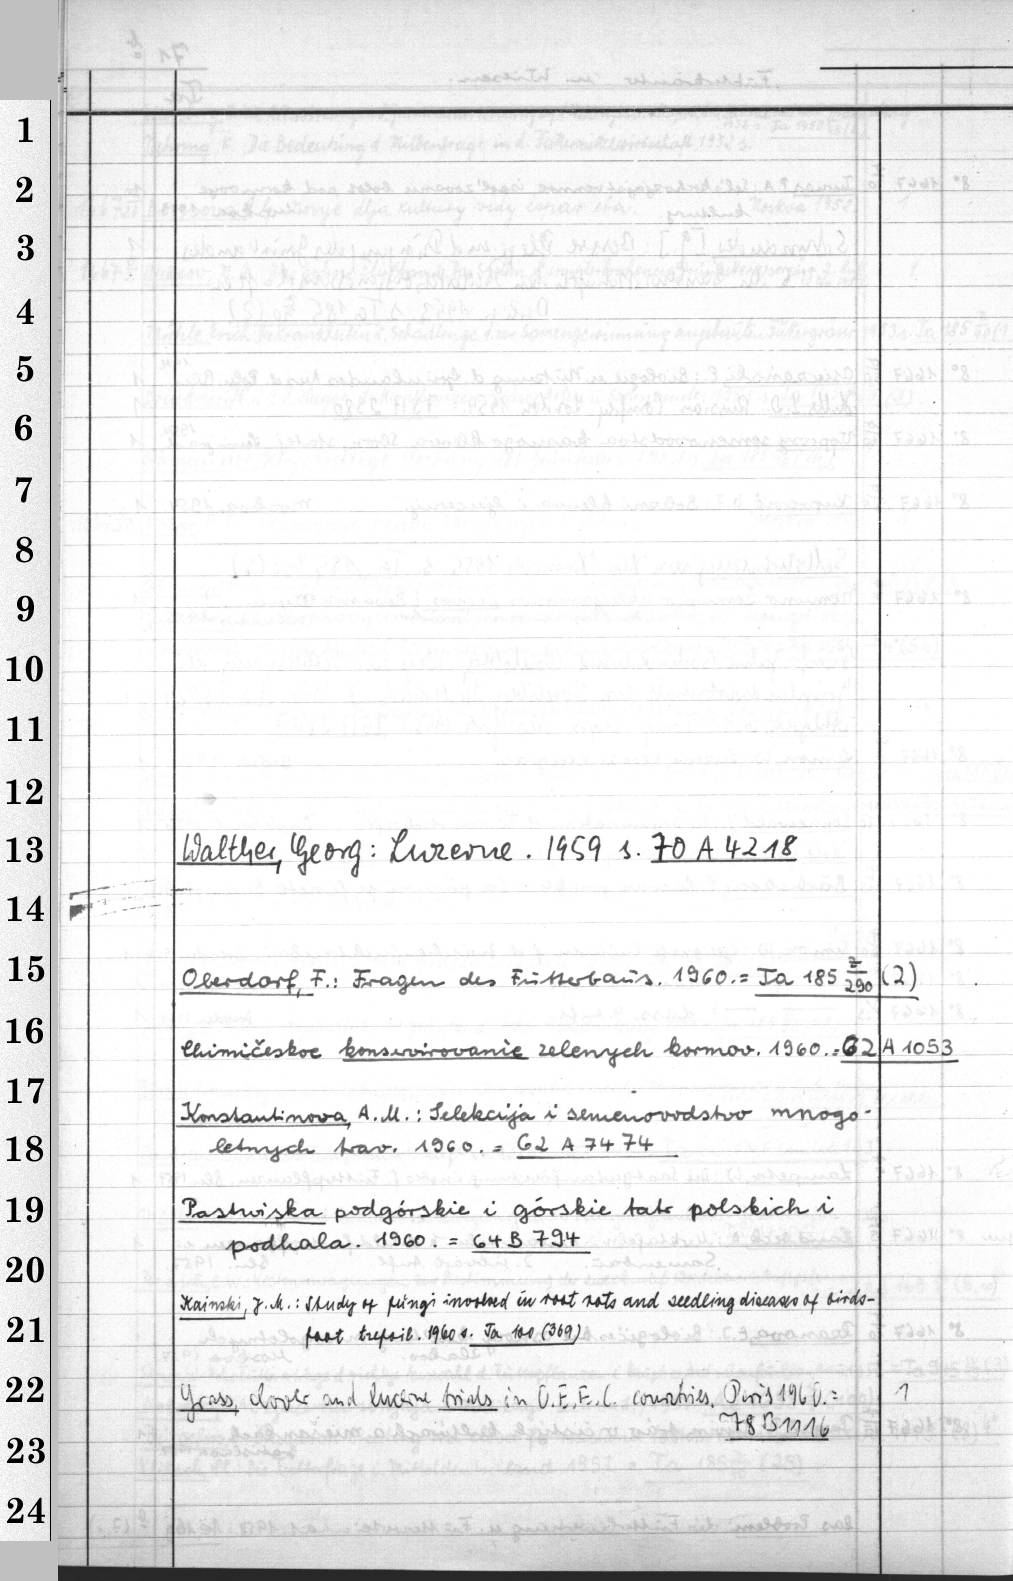 1
2
3
4
5
6
7
8
9
10
11
12
13 Walther, Georg: Luzerne. 1959 s. 70 A 4218
14
15 Oberdorf, F.: Fragen des Futterbaus. 1960.= Ta 185 z/290 (2)
16 Chimičeskoe konservirovanie zelenych kormov. 1960.= 62 A 1053
17 Konstantinova, A.M.: Selekcija i semenovodstvo mnogo-
18 letnych trav. 1960. = 62 A 7474
19 Pastwiska podgórskie i górskie tatr polskich i
20 podhala. 1960. = 64 B 794
Kainski, J.M.: Study of fungi involved in root rots and seedling diseases of birds-
21 foot trefoil. 1960 s. Ta 100 (369)
22 Grass, clover and lucerne trials in O.E.E.C. countries. Paris 1960.= 1
23 78 B 1116
24